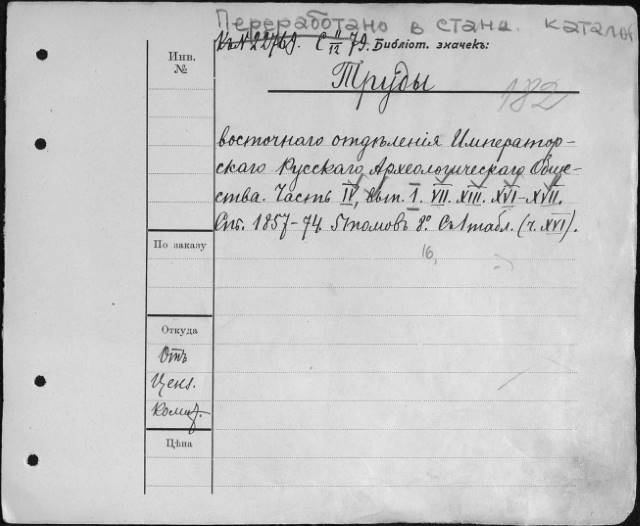 Переработано в станд. каталог
К № 22769. С II/12 79. Библіот. значекъ:
Инв.
№
Труды
182
восточнаго отдѣленія Император-
скаго Русскаго Археологическаго Обще-
ства. Часть IV, вып. I. VII. XIII. XVI-XVII.
Спб. 1857-74. 5 томовъ 8°. Съ 1 табл. (ч. XVI).
16,
По заказу
Откуда
Отъ
Ценз.
Комит.
Цѣна